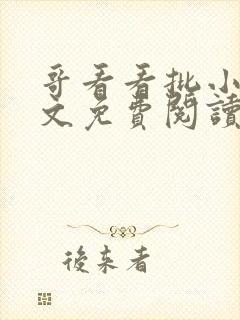 哥看看批小
文免費閱讀
後來者